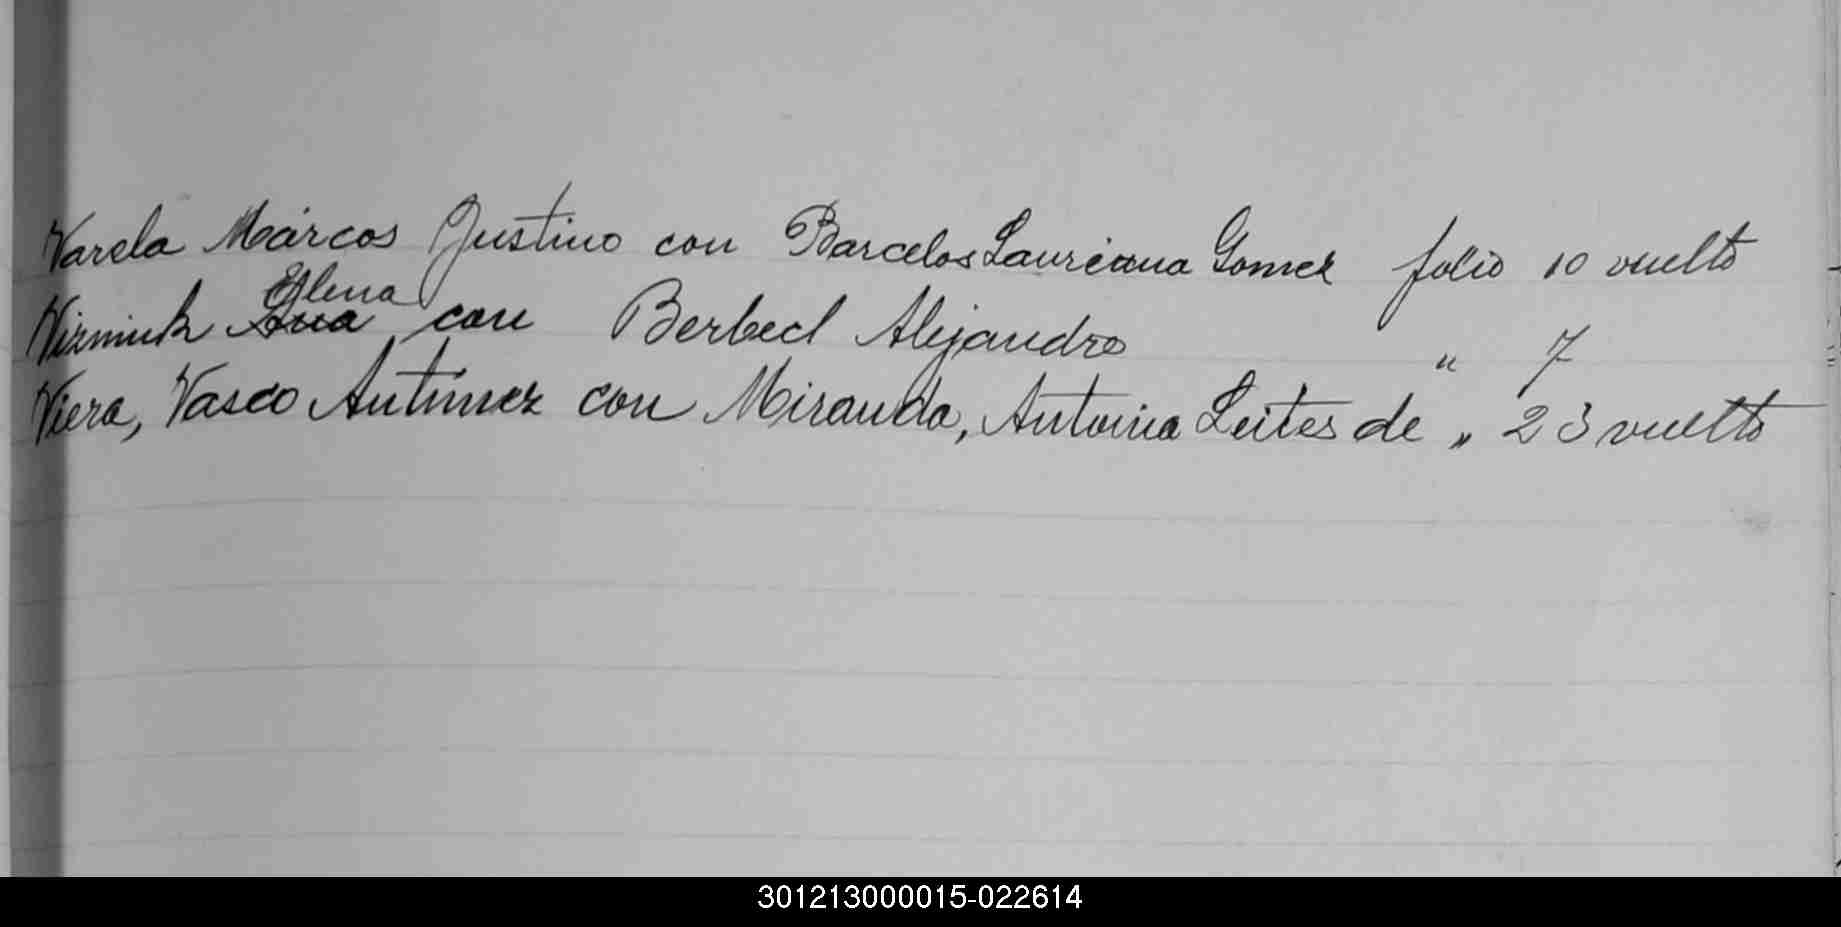 Varela Márcos Justino con Barcelos Laureana Gomez folio 10 vuelto
Elena
Vizniuk Ana con Berbecl Alejandro " 7
Viera, Vasco Antunez con Miranda, Antonia Leites de " 23 vuelto
301213000015-022614